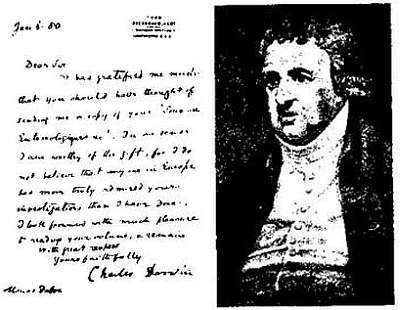 Jan 6. 80
Dear Sir
It has gratified me much
that you should have thought of
sending me a copy of your "Souvenirs
Entomologiques". In one sense
I am worthy of the gift, for I do
not believe that any one in Europe
has more truly admired your
investigations than I have done.
I look forward with much pleasure
to reading your volume, & remain
with great respect
Yours faithfully
Charles Darwin